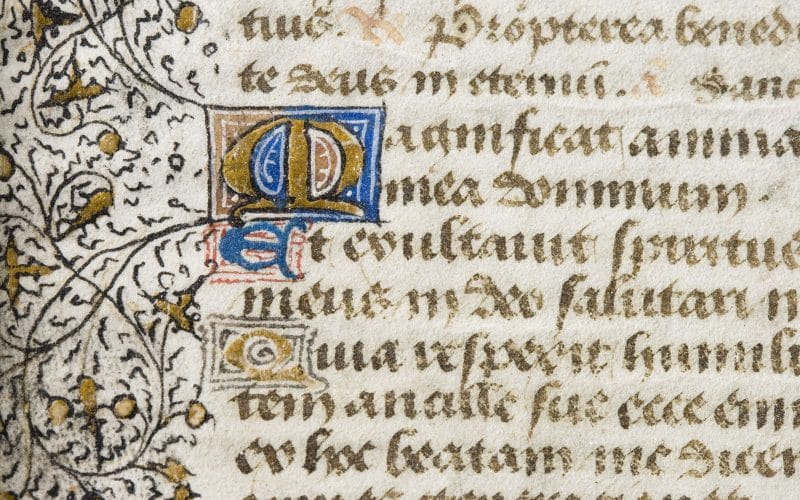 tius. Propterea bened
te deus in eternū. Sanc
Magnificat anima
mea dominum.
Et exultauit spiritus
meus in deo salutari m
Quia respexit humili
tem ancille sue ecce eni
ex hoc beatam me dicen